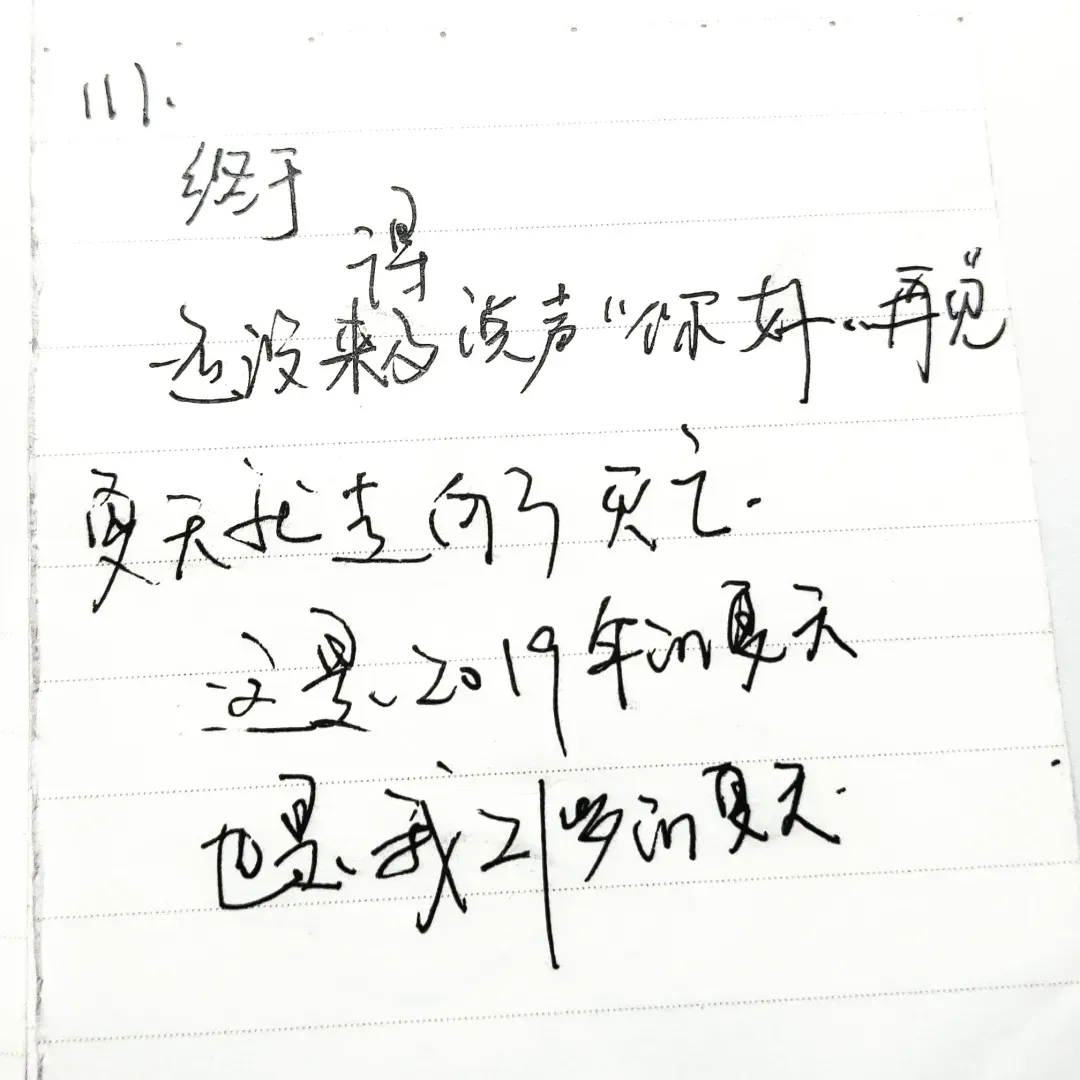 111.
终于
还没来得及说声“你好、再见”
夏天就走向了灭亡.
这是、2019年的夏天
也是、我21岁的夏天.